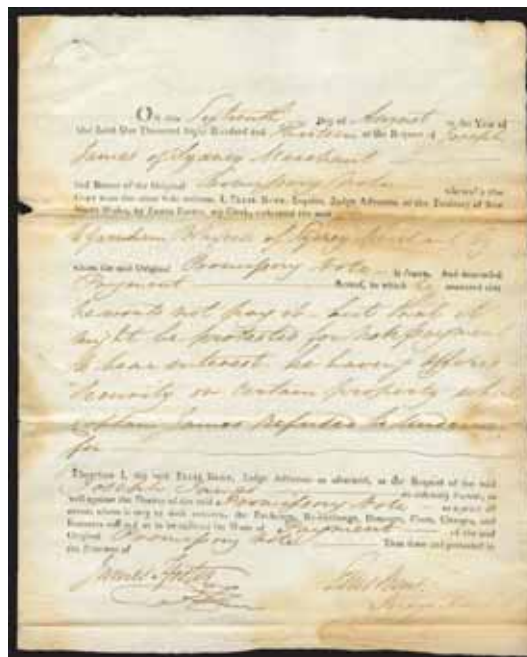 On this Sixteenth Day of August in the Year of
Our Lord One Thousand Eight Hundred and Thirteen at the Request of Joseph
James of Sydney Merchant
and Bearer of the Original Promissory Note whereof a true
Copy is on the other Side written, I, Ellis Bent, Esquire, Judge Advocate of the Territory of New
South Wales, by James Foster, my Clerk,
of Sydney
whom the said Original Promissory Note is drawn, And demanded
Payment thereof, to which he answered that
he would not pay it but that it
might be protested for non payment
to bear interest he having offered
security on certain property which
Captain James refused
for
Therefore I, the said Ellis Bent, Judge Advocate as aforesaid, at the Request of the said
Joseph James
as well against the Drawer of the said Promissory Note as against all
others whom it may or doth concern, for Exchange, Re-exchange, Damages, Costs, Charges, and
Interests suffered or to be suffered for Want of Payment of the said
Original Promissory Note Thus done and protested in
the Presence of
James Foster
Ellis Bent